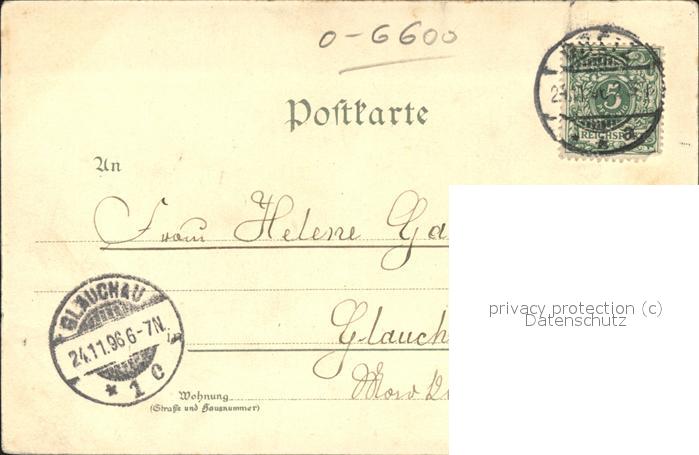 0-6600
5
REICHSP
Postkarte
An
Frau Helene Ga
GLAUCHAU
24.11.96 6-7N.
* 1 c
Glauch
Wohnung
(Straße und Hausnummer)
privacy protection (c)
Datenschutz